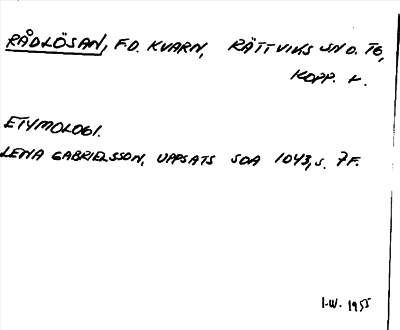 RÅDLÖSAN, F.D. KVARN, RÄTTVIKS SN O. TG,
KOPP. L.
ETYMOLOGI.
LENA GABRIELSSON, UPPSATS SOA 1043, s. 7 F.
I.W. 1955